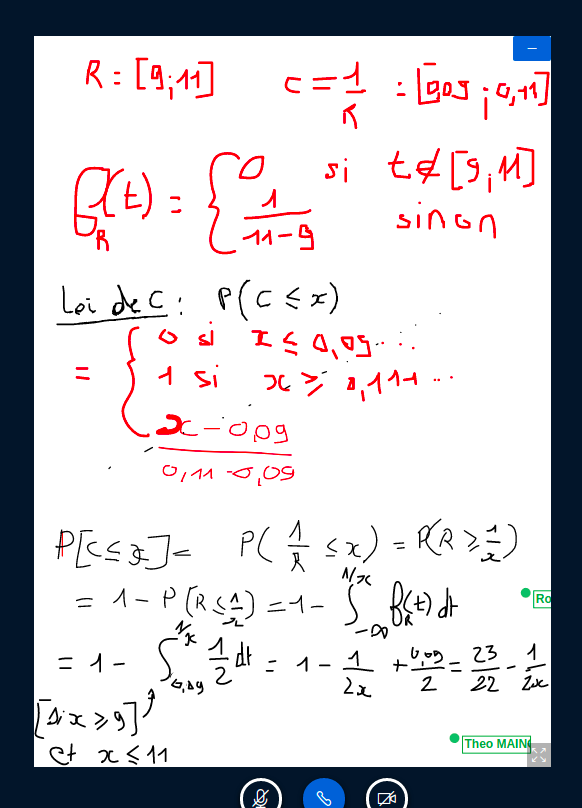 R = [9 ; 11]    C = 1/R = [0,09 ; 0,11]
f_R(t) = { 0 si t ∉ [9 ; 11]
1/(11-9) sinon
Loi de C : P(C ≤ x)
= { 0 si x ≤ 0,09...
1 si x ≥ 0,111...
(x - 0,09)/(0,11 - 0,09)
P[C ≤ x] = P(1/R ≤ x) = P(R ≥ 1/x)
= 1 - P[R ≤ 1/x) = 1 - ∫_{-∞}^{1/x} f_R(t) dt
Ro
= 1 - ∫_{0,09}^{1/x} 1/2 dt = 1 - 1/2x + 0,09/2 = 23/22 - 1/2x
[si x ≥ 9]
et x ≤ 11
Theo MAIN